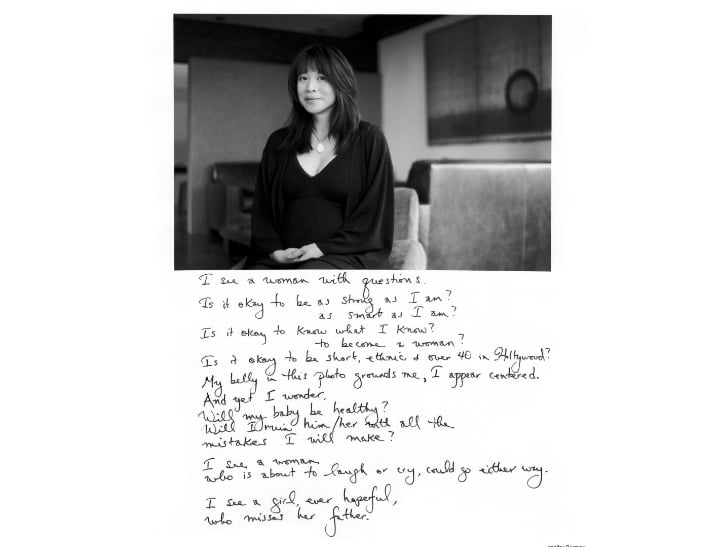 I see a woman with questions.
Is it okay to be as strong as I am?
as smart as I am?
Is it okay to know what I know?
to become a woman?
Is it okay to be short, ethnic & over 40 in Hollywood?
My belly in this photo grounds me, I appear centered.
And yet I wonder.
Will my baby be healthy?
Will I ruin him/her with all the
mistakes I will make?
I see a woman
who is about to laugh or cry, could go either way.
I see a girl, ever hopeful,
who misses her father.